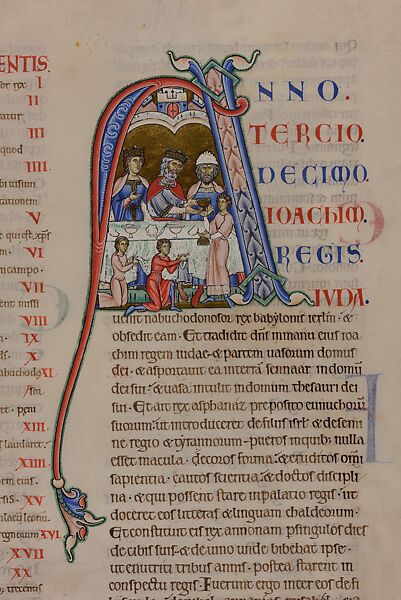 ENTIS.
or rex I
II
atur
III
quod
IIII.
bi uisum
tationem
V
e qui est xps
m VI
neampo.
VII
ent missi
VIII
IX
X
abuchod XI
XIII
laudaret.
XIIII
XV
XVI
XVII
XX
ANNO.
TERCIO
DECIMO
IOACHIM.
REGIS
IUDA.
uenit nabuchodonosor rex babylonis ierlm. &
obsedit eam. Et tradidit dns in manu eius ioa
chim regem iudae. & partem uasorum domus
dei. & asportauit ea in terra sennaar in domu
dei sui. & uasa intulit in domum thesauri dei
sui. Et ait rex asphanaz preposito eunuchoru
suorum. ut introduceret de filiis isrl. & de semi
ne regio & tyrannorum. pueros in quib; nulla
esset macula. decoros forma. & eruditos omi
sapientia. cautos scientia. & doctos discipli
na. & qui possent stare in palatio regis. ut
doceret eos litteras & linguam chaldeorum.
Et constituit eis rex annonam p singulos dies
de cibis suis. & de uino unde bibebat ipse.
ut enutriti tribus annis. postea starent in
conspectu regis. Fuerunt ergo inter eos de fi